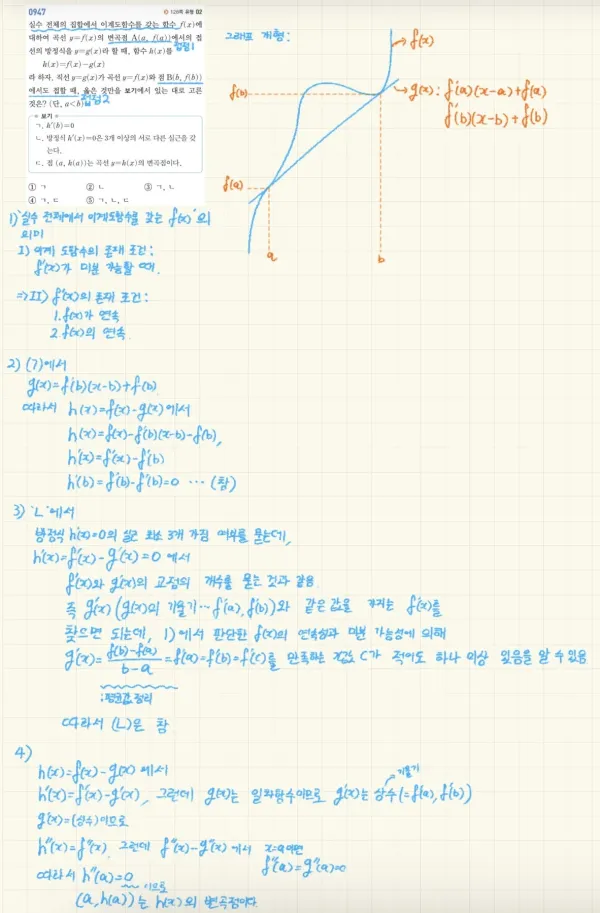 0947
128쪽 유형 02
실수 전체의 집합에서 이계도함수를 갖는 함수 f(x)에
대하여 곡선 y=f(x)의 변곡점 A(a, f(a))에서의 접
선의 방정식을 y=g(x)라 할 때, 함수 h(x)를
접점1
h(x)=f(x)-g(x)
라 하자. 곡선 y=g(x)가 곡선 y=f(x)와 점 B(b, f(b))
에서도 접할 때, 옳은 것만을 보기에서 있는 대로 고른
것은? (단, a<b)
접점2
보기
ㄱ. h'(b)=0
ㄴ. 방정식 h'(x)=0은 3개 이상의 서로 다른 실근을 갖
는다.
ㄷ. 점 (a, h(a))는 곡선 y=h(x)의 변곡점이다.
① ㄱ ② ㄴ ③ ㄱ, ㄴ
④ ㄱ, ㄷ ⑤ ㄱ, ㄴ, ㄷ
그래프 개형:
f(x)
g(x): f'(a)(x-a)+f(a)
f'(b)(x-b)+f(b)
f(b)
f(a)
a
b
1) '실수 전체에서 이계도함수를 갖는 f(x)'의
의미
I) 이계 도함수의 존재 조건:
f'(x)가 미분 가능할 때.
=> II) f'(x)의 존재 조건:
1. f(x)가 연속
2. f'(x)의 연속.
2) (ㄱ)에서
g(x)=f'(b)(x-b)+f(b)
따라서 h(x)=f(x)-g(x)에서
h(x)=f(x)-f'(b)(x-b)-f(b),
h'(x)=f'(x)-f'(b)
h'(b)=f'(b)-f'(b)=0 … (참)
3) 'ㄴ'에서
방정식 h'(x)=0의 실근 최소 3개 가짐 여부를 묻는데,
h'(x)=f'(x)-g'(x)=0 에서
f'(x)와 g'(x)의 교점의 개수를 묻는 것과 같음
즉 g'(x) (g(x)의 기울기…f'(a), f'(b))와 같은 값을 가지는 f'(x)를
찾으면 되는데, 1)에서 판단한 f(x)의 연속성과 미분 가능성에 의해
g'(x)=f(b)-f(a)/b-a=f'(a)=f'(b)=f'(c)를 만족하는 x값 c가 적어도 하나 이상 있음을 알 수 있음
:평균값 정리
따라서 (ㄴ)은 참
4)
h(x)=f(x)-g(x) 에서
기울기
h'(x)=f'(x)-g'(x), 그런데 g(x)는 일차함수이므로 g'(x)는 상수(=f'(a), f'(b))
g'(x)=(상수)이므로
h''(x)=f''(x), 그런데 f''(x)-g''(x) 에서 x=a이면
f''(a)=g''(a)=0
따라서 h''(a)=0
이므로
(a, h(a))는 h(x)의 변곡점이다.